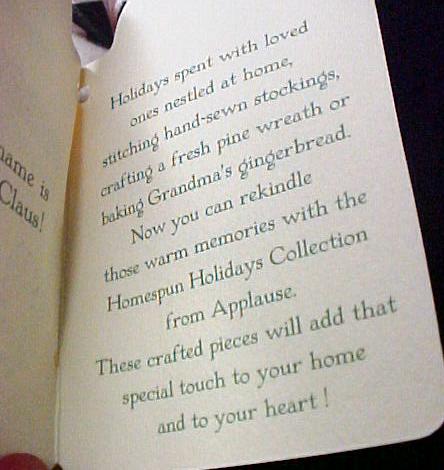 name is
Claus!
Holidays spent with loved
ones nestled at home,
stitching hand-sewn stockings,
crafting a fresh pine wreath or
baking Grandma's gingerbread.
Now you can rekindle
those warm memories with the
Homespun Holidays Collection
from Applause.
These crafted pieces will add that
special touch to your home
and to your heart !